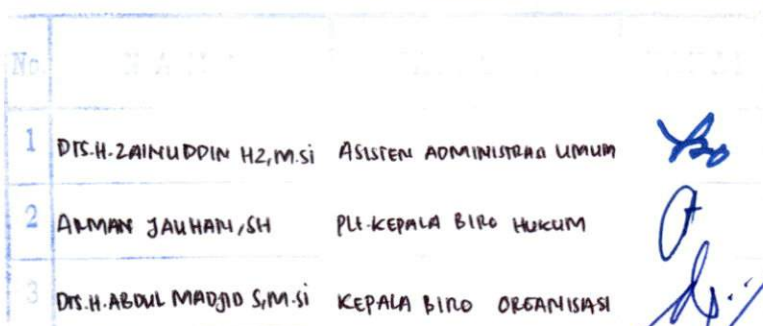 No N A M A
1 Drs.H.ZAINUDDIN HZ, M.si ASISTEN ADMINISTRASI UMUM
2 ARMAN JAUHARI, SH PLt.KEPALA BIRO HUKUM
3 Drs.H.ABDUL MADJID S, M.si KEPALA BIRO ORGANISASI